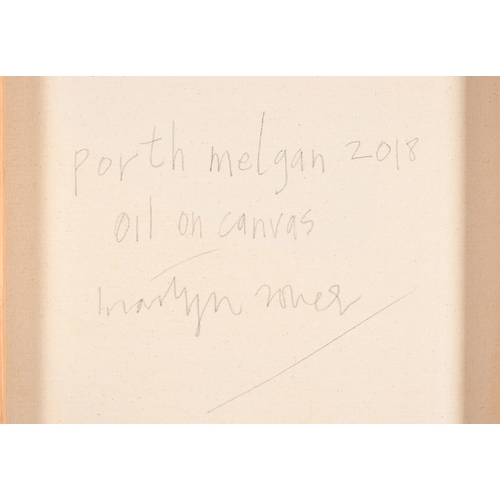 porth melgan 2018
oil on canvas
martyn